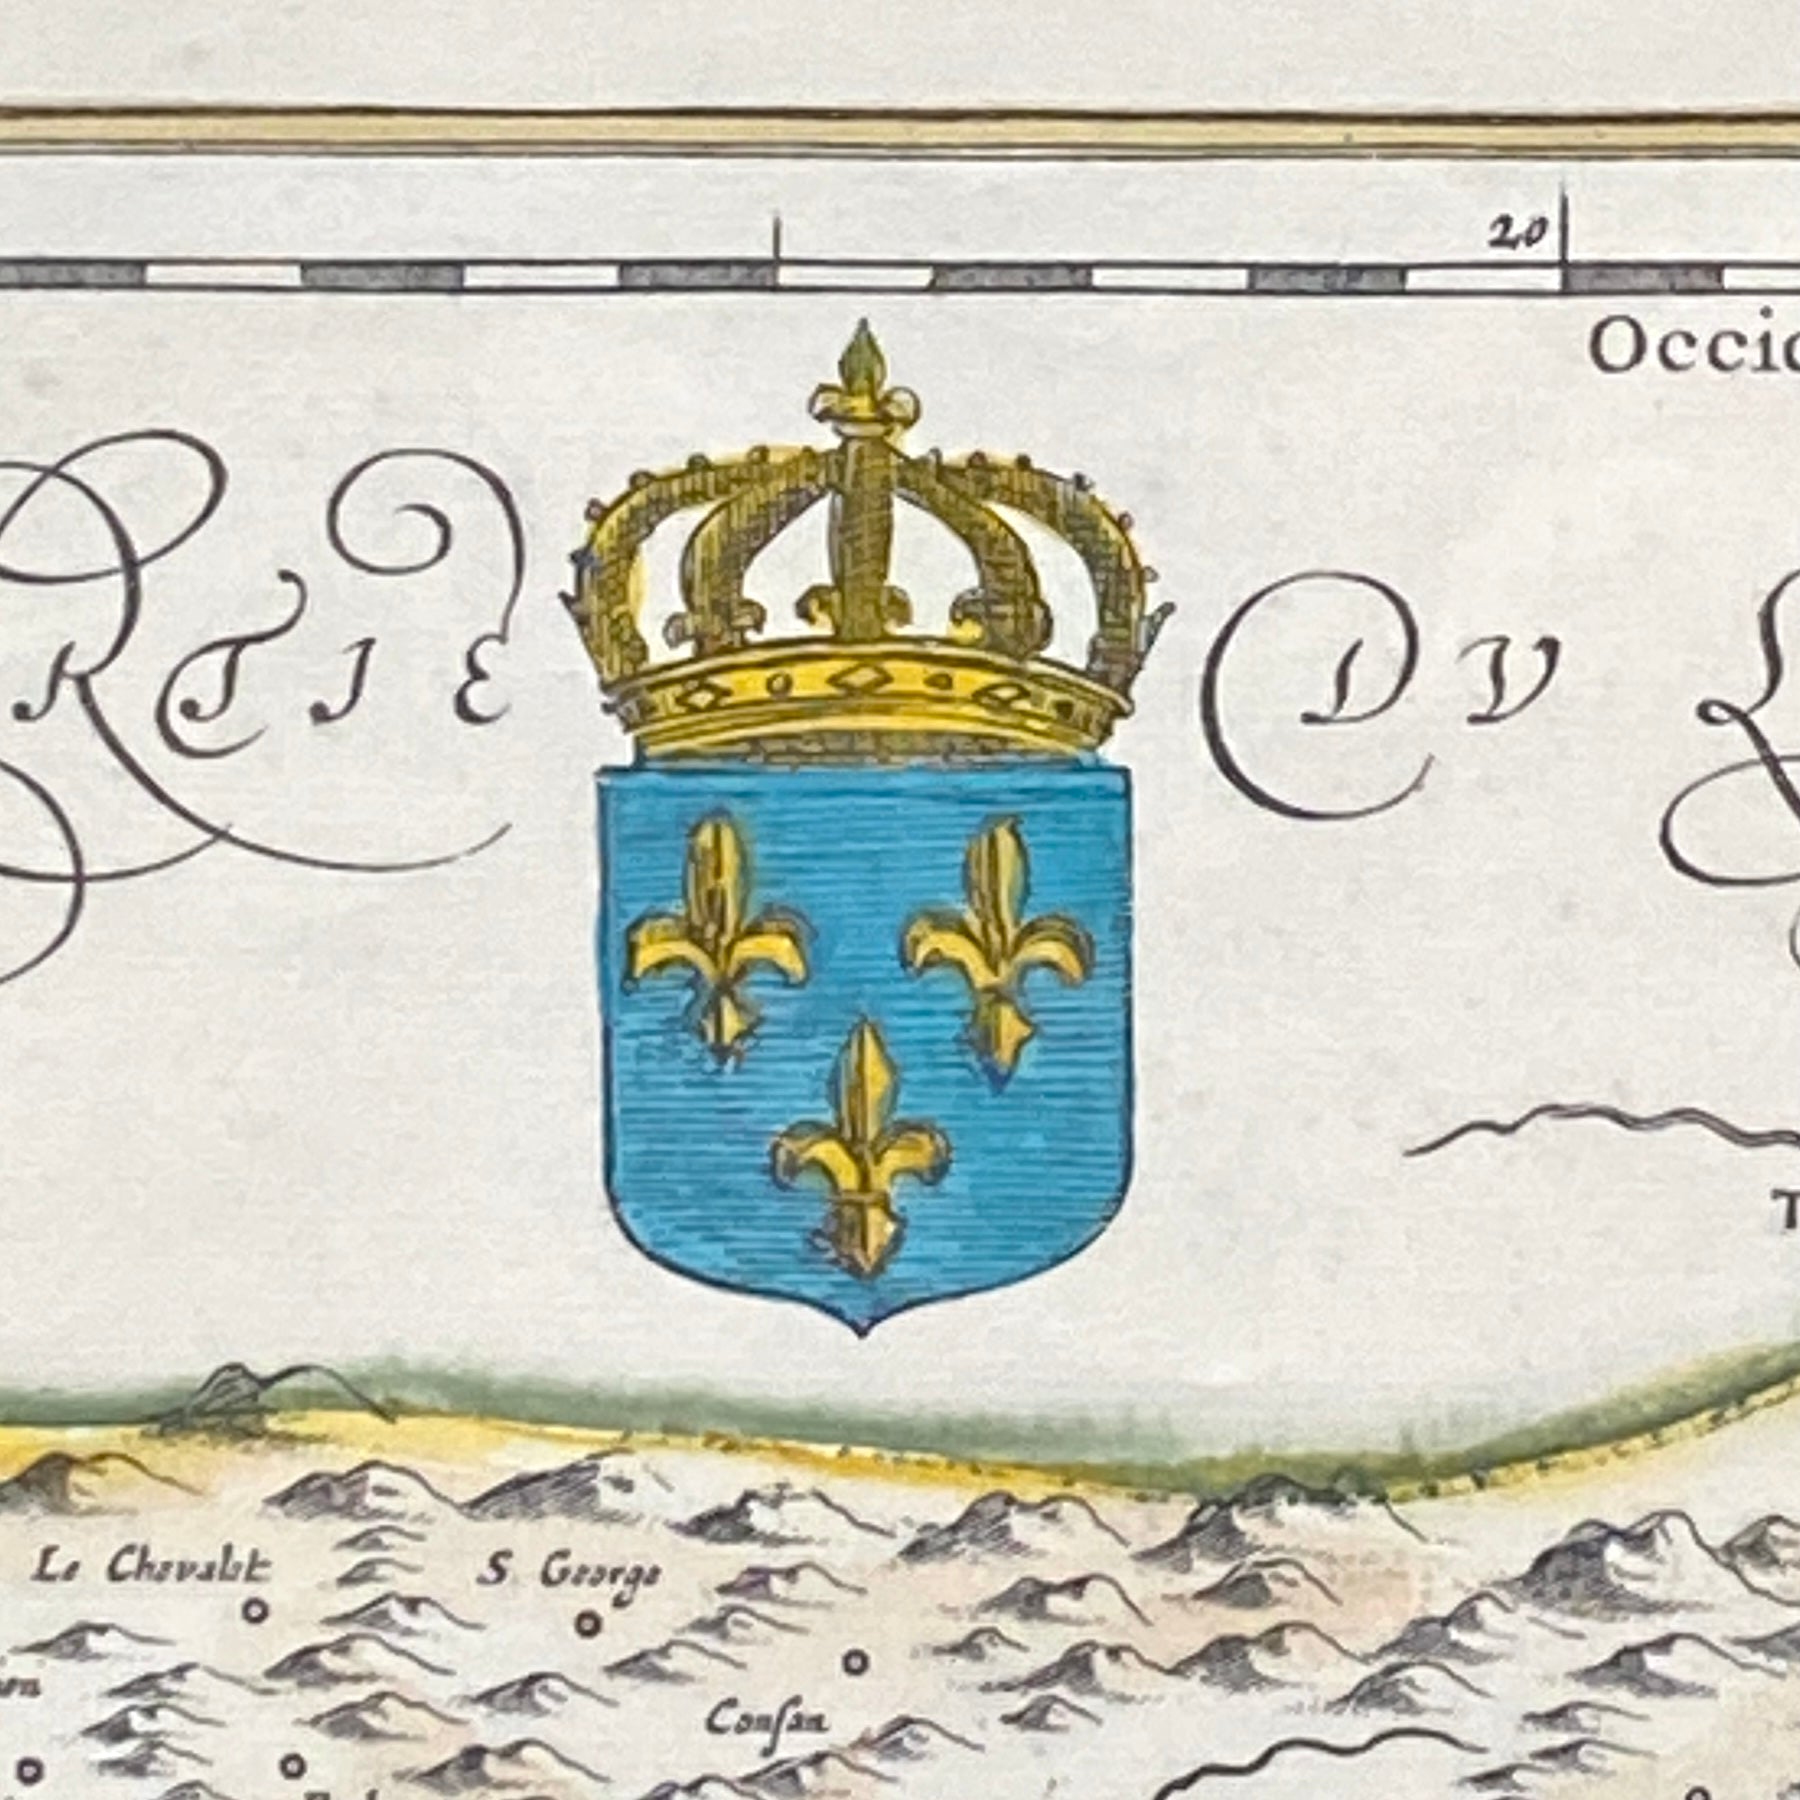 20
Occid
RTIE DV L
T
Le Chevalet S George
on
Consan